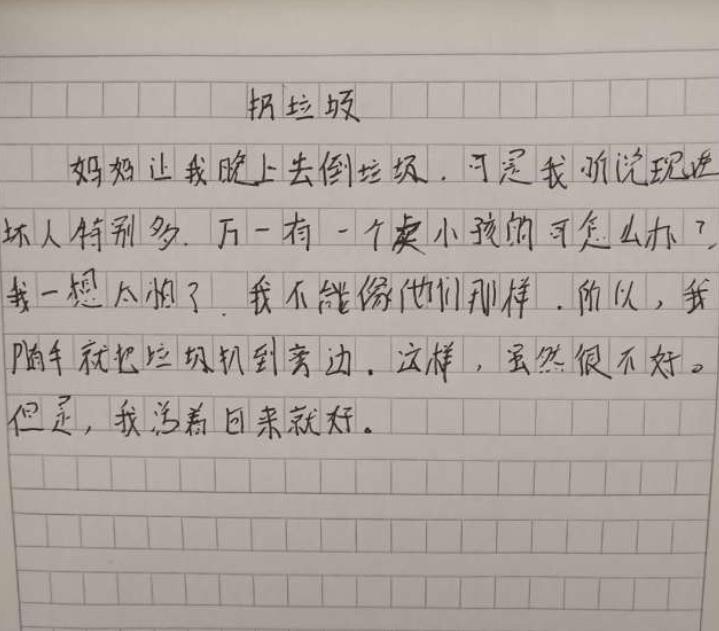 扔垃圾
妈妈让我晚上去倒垃圾.可是我听说现造
坏人特别多.万一有一个卖小孩的可怎么办?
我一想太怕了.我不能像他们那样.所以,我
随手就把垃圾扒到旁边.这样,虽然很不好。
但是,我活着回来就好。